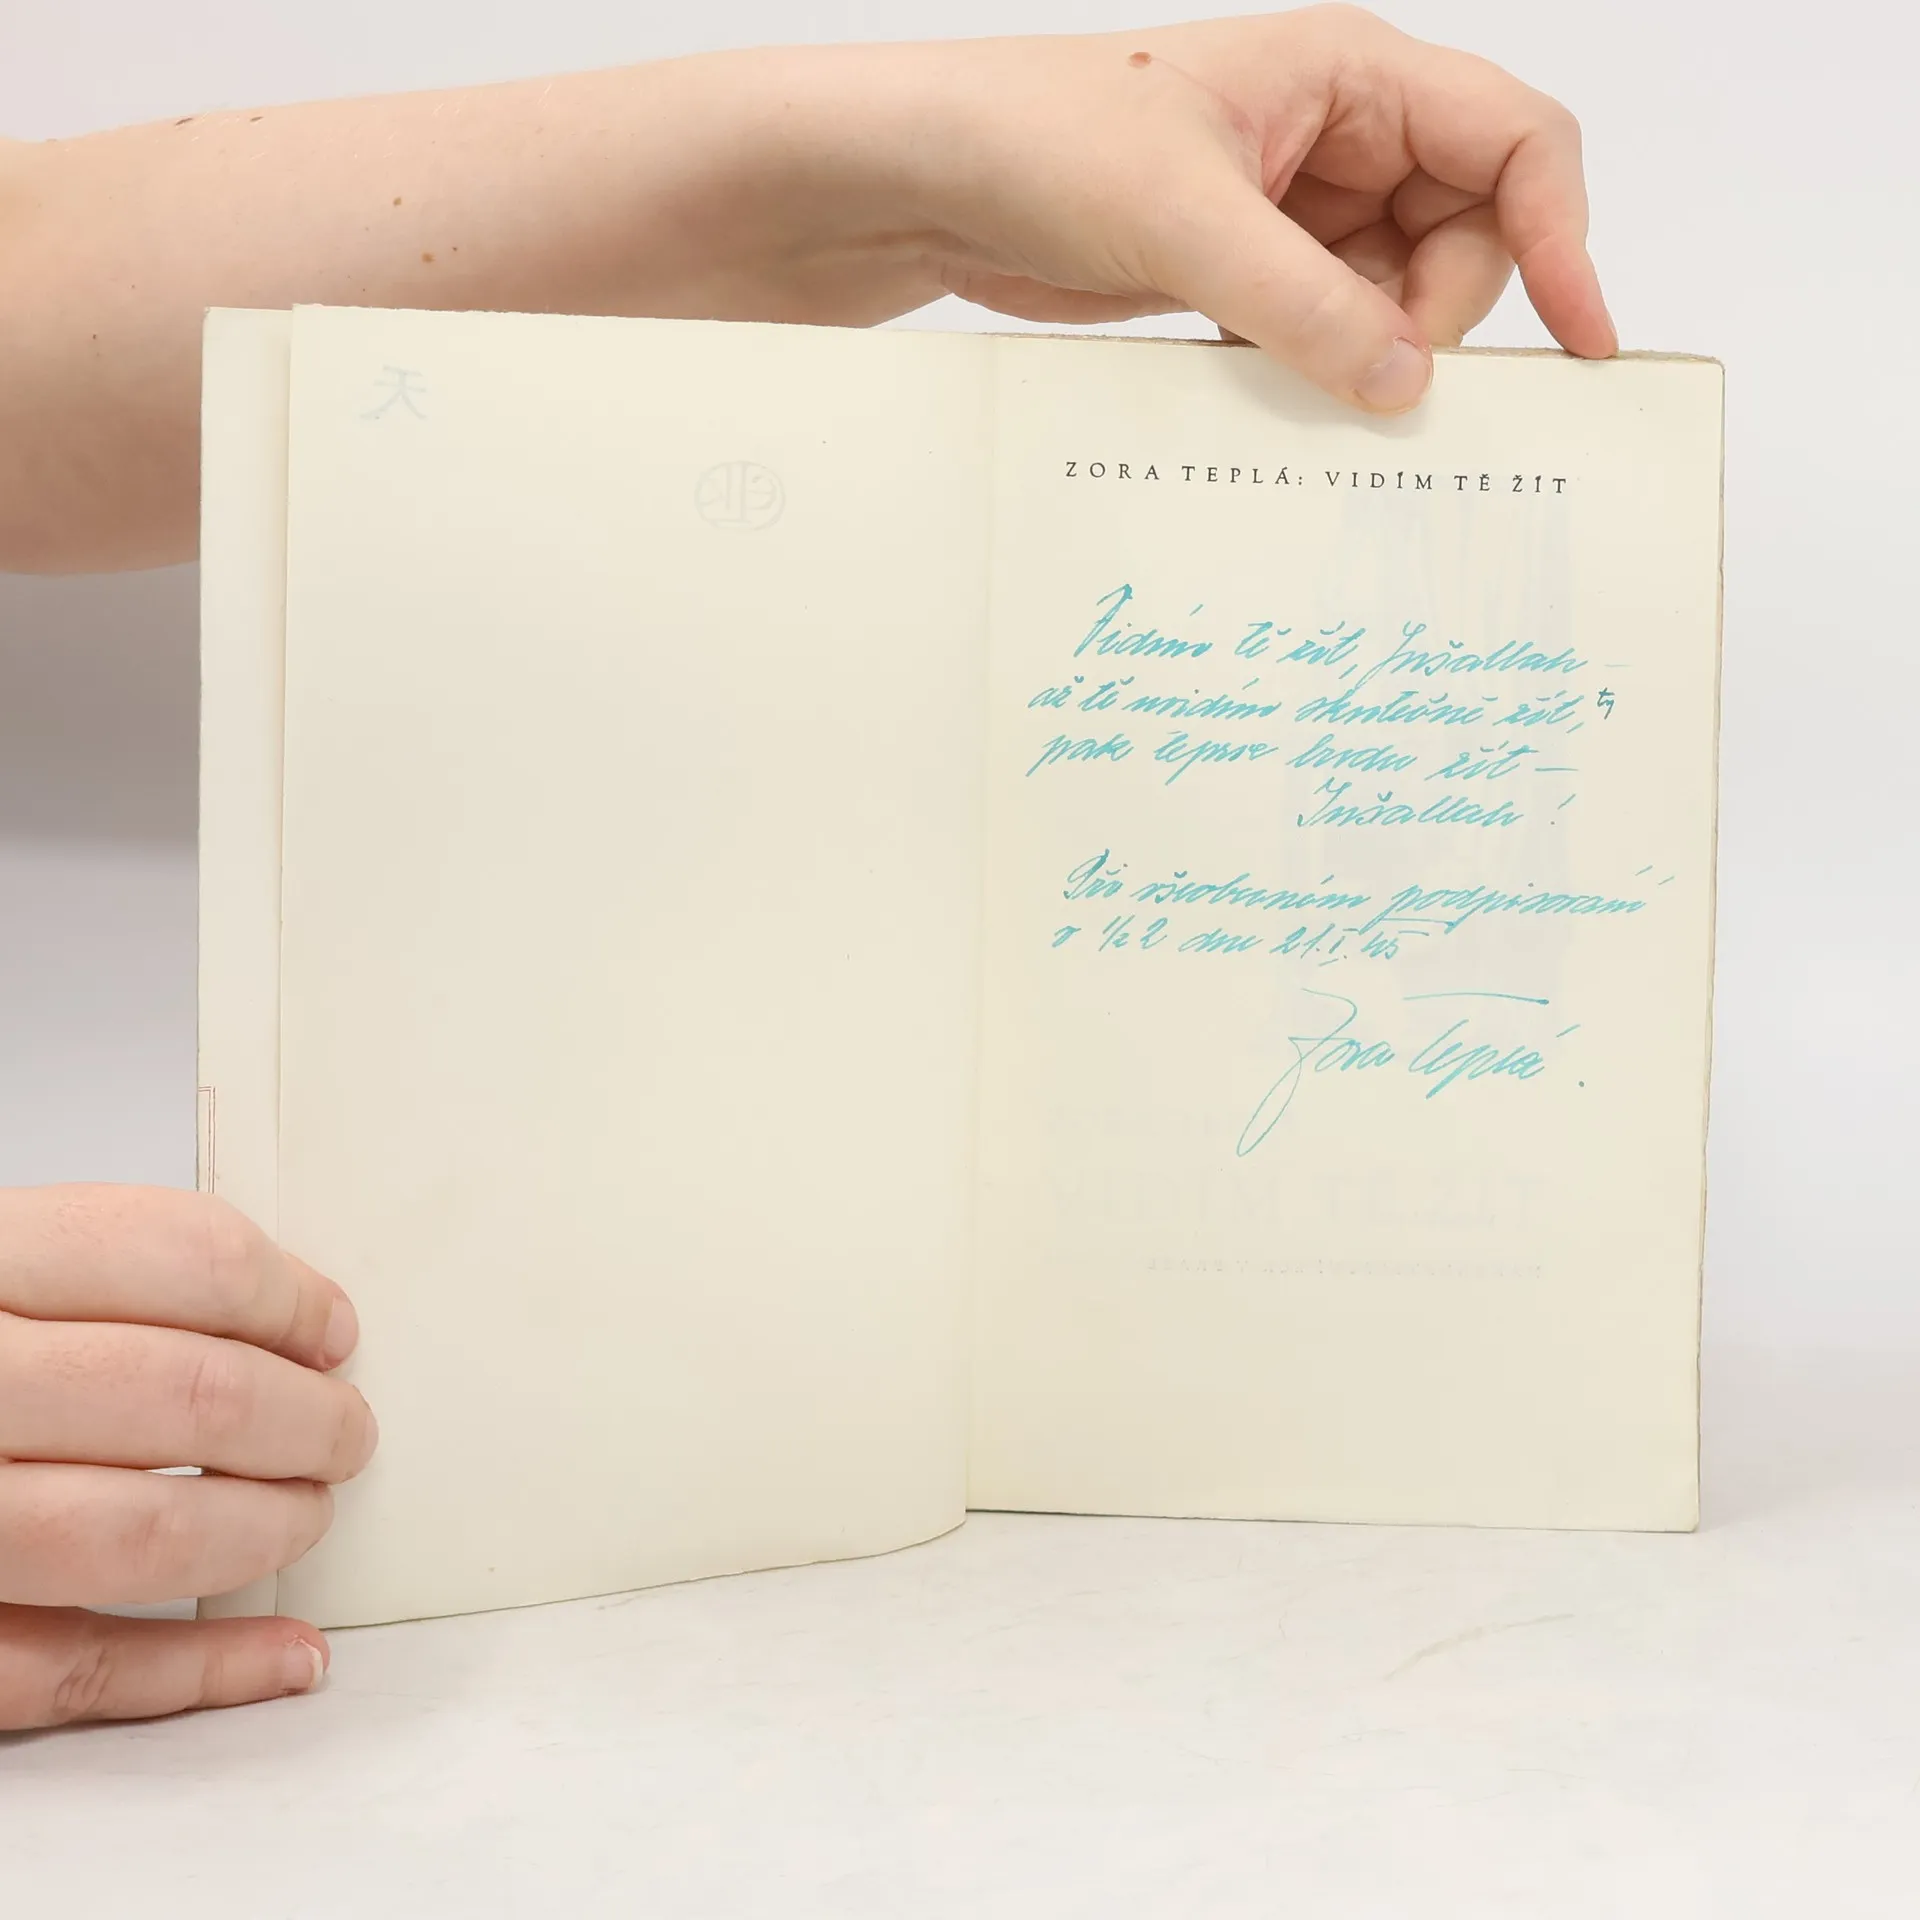 ZORA TEPLÁ: VIDÍM TĚ ŽÍT
Vidím tě žít, Inšallah –
až tě uvidím skutečně žít, ty
pak teprve budu žít –
Inšallah!
Při všeobecném podpisování
v 1/2 2 dne 21.I.45
Zora Teplá.